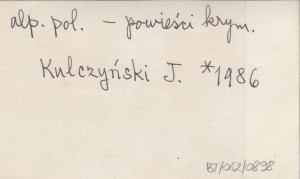 alp. pol. - powieści krym.
Kulczyński J. *1986
BJ/OSZ/0898